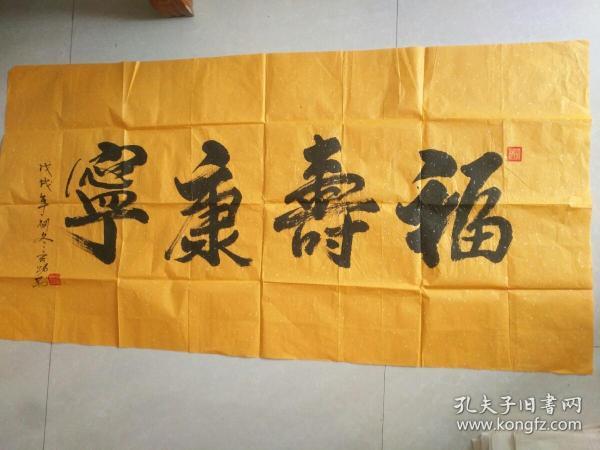 福壽康寧
戊戌年初冬
孔夫子旧書网
www.kongfz.com